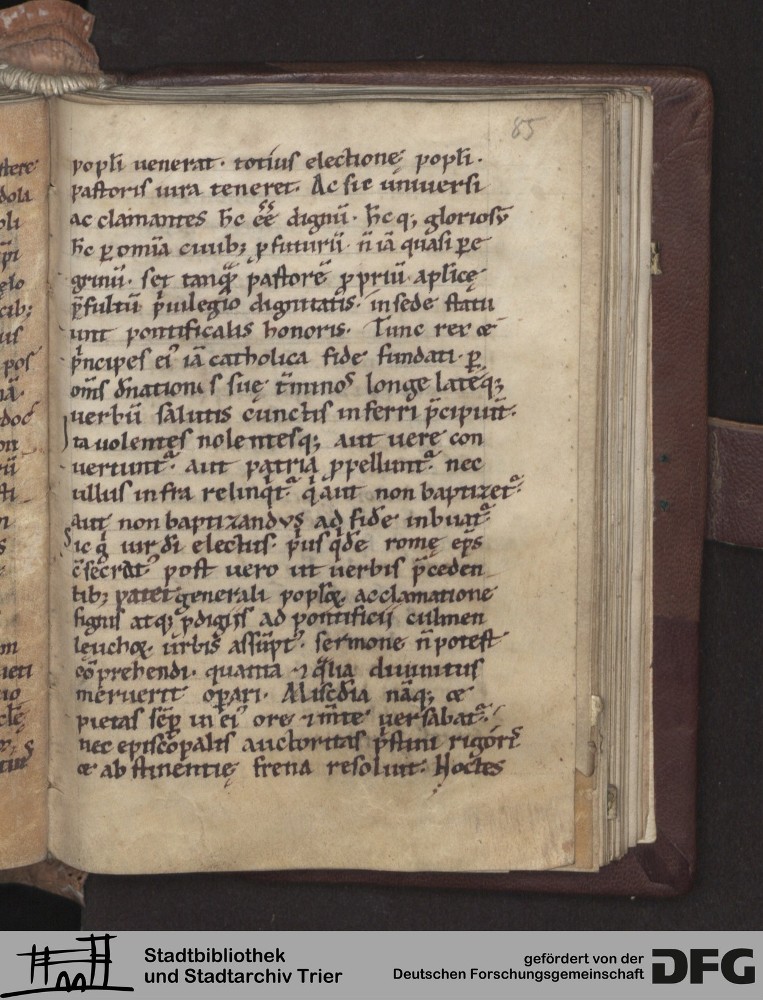 85
popłi uenerat · totius electionę popłi ·
pastoris iura teneret. Ac sic uniuersi
ac clamantes h̄c eē dignū · h̄c q; gloriosū
h̄c p omīa ciuib; pfuturū · n̄ iā quasi pe
grinū · set tanquā pastorē ppriū aplicę
p̄fultū p̄uilegio dignitatis · in sede statu
unt pontificalis honoris · Tunc rex &
p̄ncipes ei' iā catholica fide fundati · p
om̄s dn̄ationis suę t̄minos longe lateq;
uerbū salutis cunctis inferri p̄cipiut̄ ·
Ita uolentes nolentesq; aut uere con
uertunt̄ · aut patria ppellunt̄ · nec
ullus infra relinq̄t̄ · q̄ aut non baptizet̄ ·
aut non baptizandus ad fidē inbuat̄
Sic g̊ uir dī electus · p̄us q̄dē romę ep̄s
c̄secrat̄ · post uero ut uerbis p̄ceden
tib; patet generali poploꝝ acclamatione
signis atq; p̄digiis ad pontificii culmen
leuchoꝝ urbis assūpt' · sermone n̄ potest
cōprehendi · quanta ⁊ q̄lia diuinitus
meruerit opari · Misc̄dia nāq; &
pietas sēp in ei' ore ⁊ m̄te uersabat̄ ·
nec episcopalis auctoritas p̄stini rigoris
& abstinentię frena resoluit · Hoctes
Stadtbibliothek
und Stadtarchiv Trier
gefördert von der
Deutschen Forschungsgemeinschaft
DFG